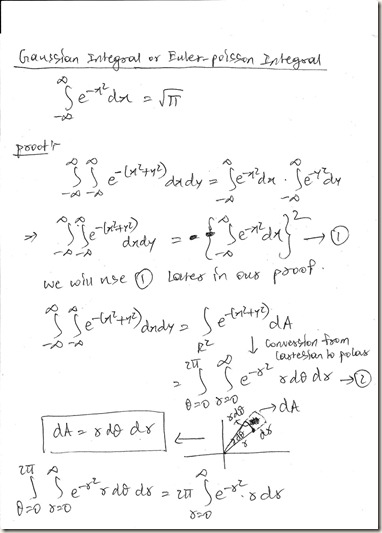 Gaussian Integral or Euler-poisson Integral
∫_{-∞}^{∞} e^{-x²} dx = √π
proof:-
∫_{-∞}^{∞} ∫_{-∞}^{∞} e^{-(x²+y²)} dx dy = ∫_{-∞}^{∞} e^{-x²} dx · ∫_{-∞}^{∞} e^{-y²} dy
⇒ ∫_{-∞}^{∞} ∫_{-∞}^{∞} e^{-(x²+y²)} dx dy = { ∫_{-∞}^{∞} e^{-x²} dx }² → ①
we will use ① later in our proof.
∫_{-∞}^{∞} ∫_{-∞}^{∞} e^{-(x²+y²)} dx dy = ∫_{R²} e^{-(x²+y²)} dA
↓ conversion from
cartesian to polar
= ∫_{θ=0}^{2π} ∫_{r=0}^{∞} e^{-r²} r dθ dr → ②
dA = r dθ dr ←
r dθ
→ dA
dθ
r
dr
∫_{θ=0}^{2π} ∫_{r=0}^{∞} e^{-r²} r dθ dr = 2π ∫_{r=0}^{∞} e^{-r²} · r dr